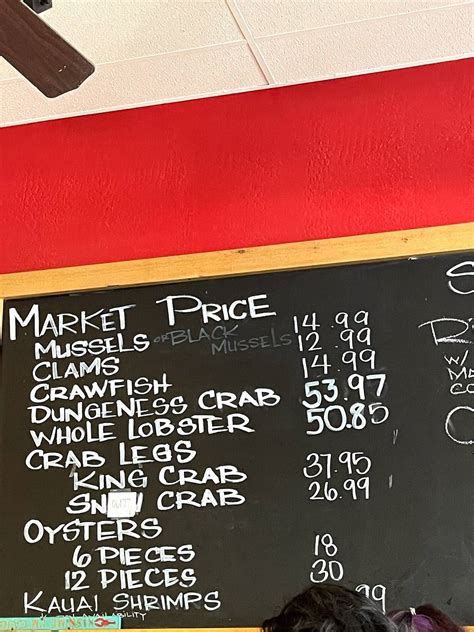 MARKET PRICE
MUSSELS or BLACK MUSSELS 14.99
CLAMS 12.99
CRAWFISH 14.99
DUNGENESS CRAB 53.97
WHOLE LOBSTER 50.85
CRAB LEGS
KING CRAB 37.95
SN CRAB 26.99
OYSTERS
6 PIECES 18
12 PIECES 30
KAUAI SHRIMPS .99
AVAILABILITY
S
R
W/
C